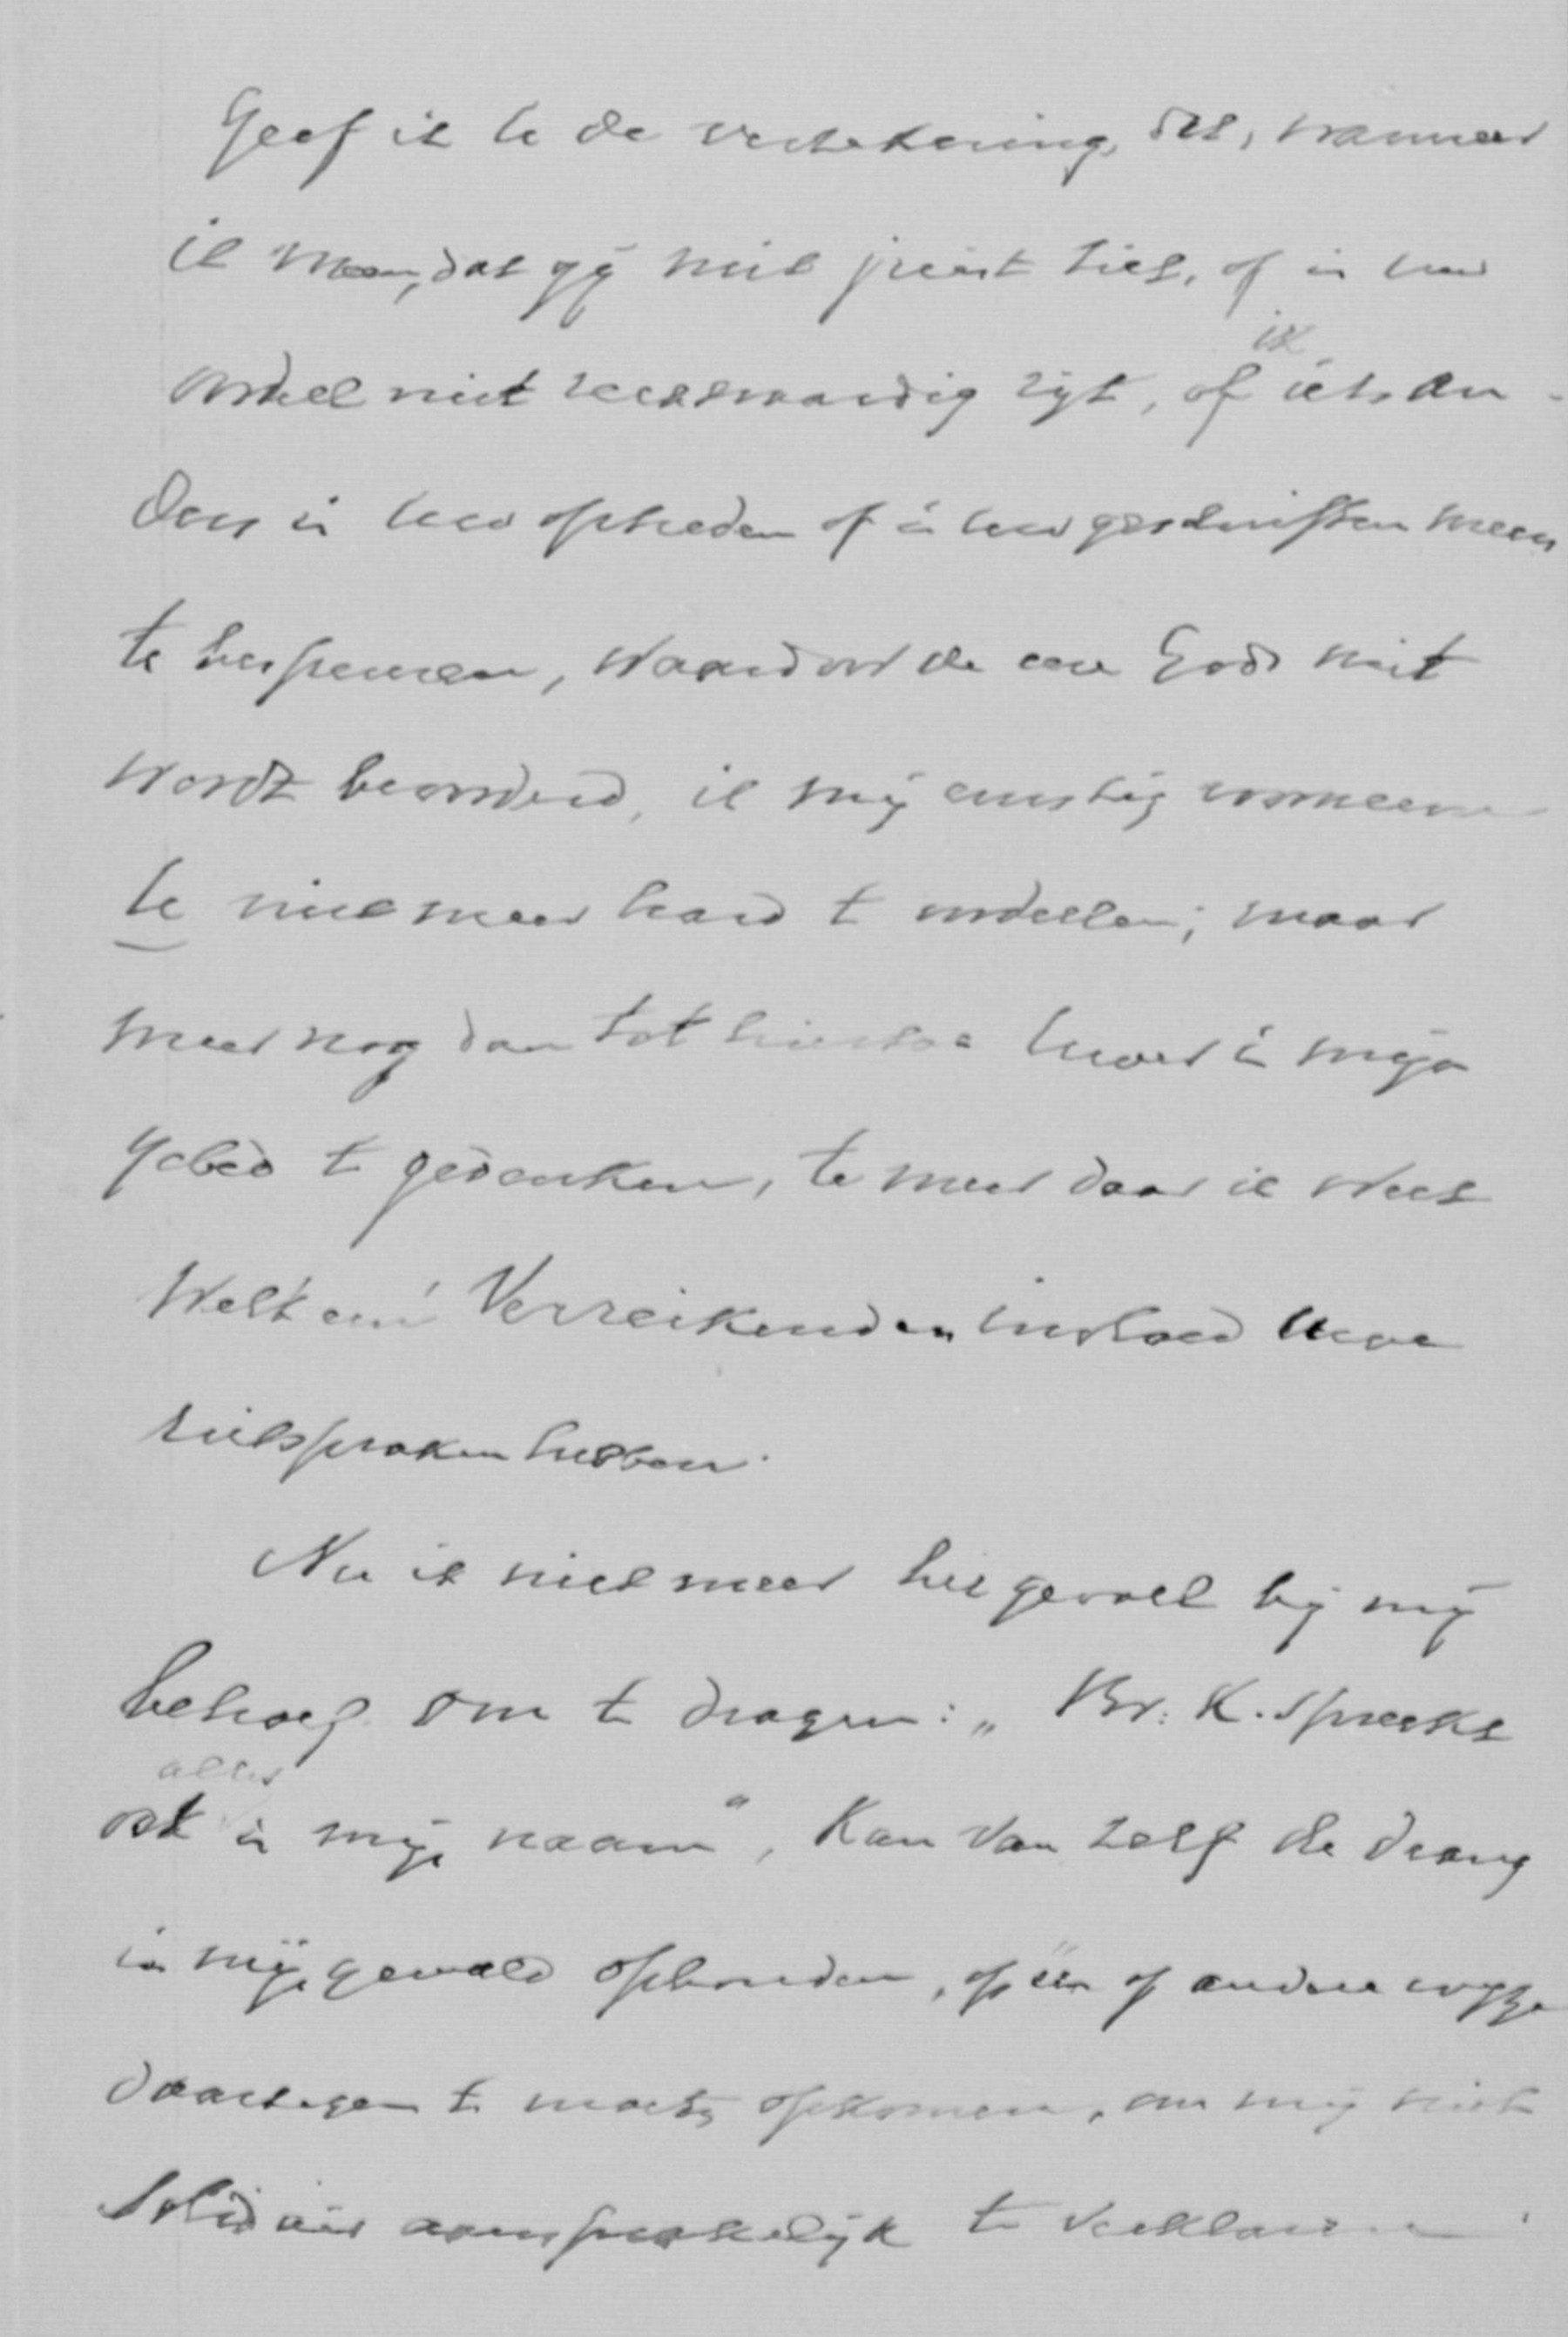 Geef ik U de verzekering, dat, wanneer
ik meen, dat gij niet juist ziet, of in uw
oordeel niet rechtvaardig zijt, of ik iets an-
ders in uw optreden of in uw geschriften meen
te bespeuren, waardoor de eere Gods niet
wordt bevorderd, ik mij ernstig voorneem
U niet meer hard te oordeelen; maar
meer nog dan tot hiertoe Uwer in mijn
gebed te gedenken, te meer daar ik weet
Welk een' Verreikenden invloed Uwe
uitspraken hebben.
Nu ik niet meer het gevoel bij mij
behoef om te dragen: „Br: K. spreekt
ook alles in mijn naam", kan van zelf de drang
in mijn gemoed ophouden, op één of andere wijze
daartegen te moeten opkomen, om mij niet
Solidair aansprakelijk te verklaren